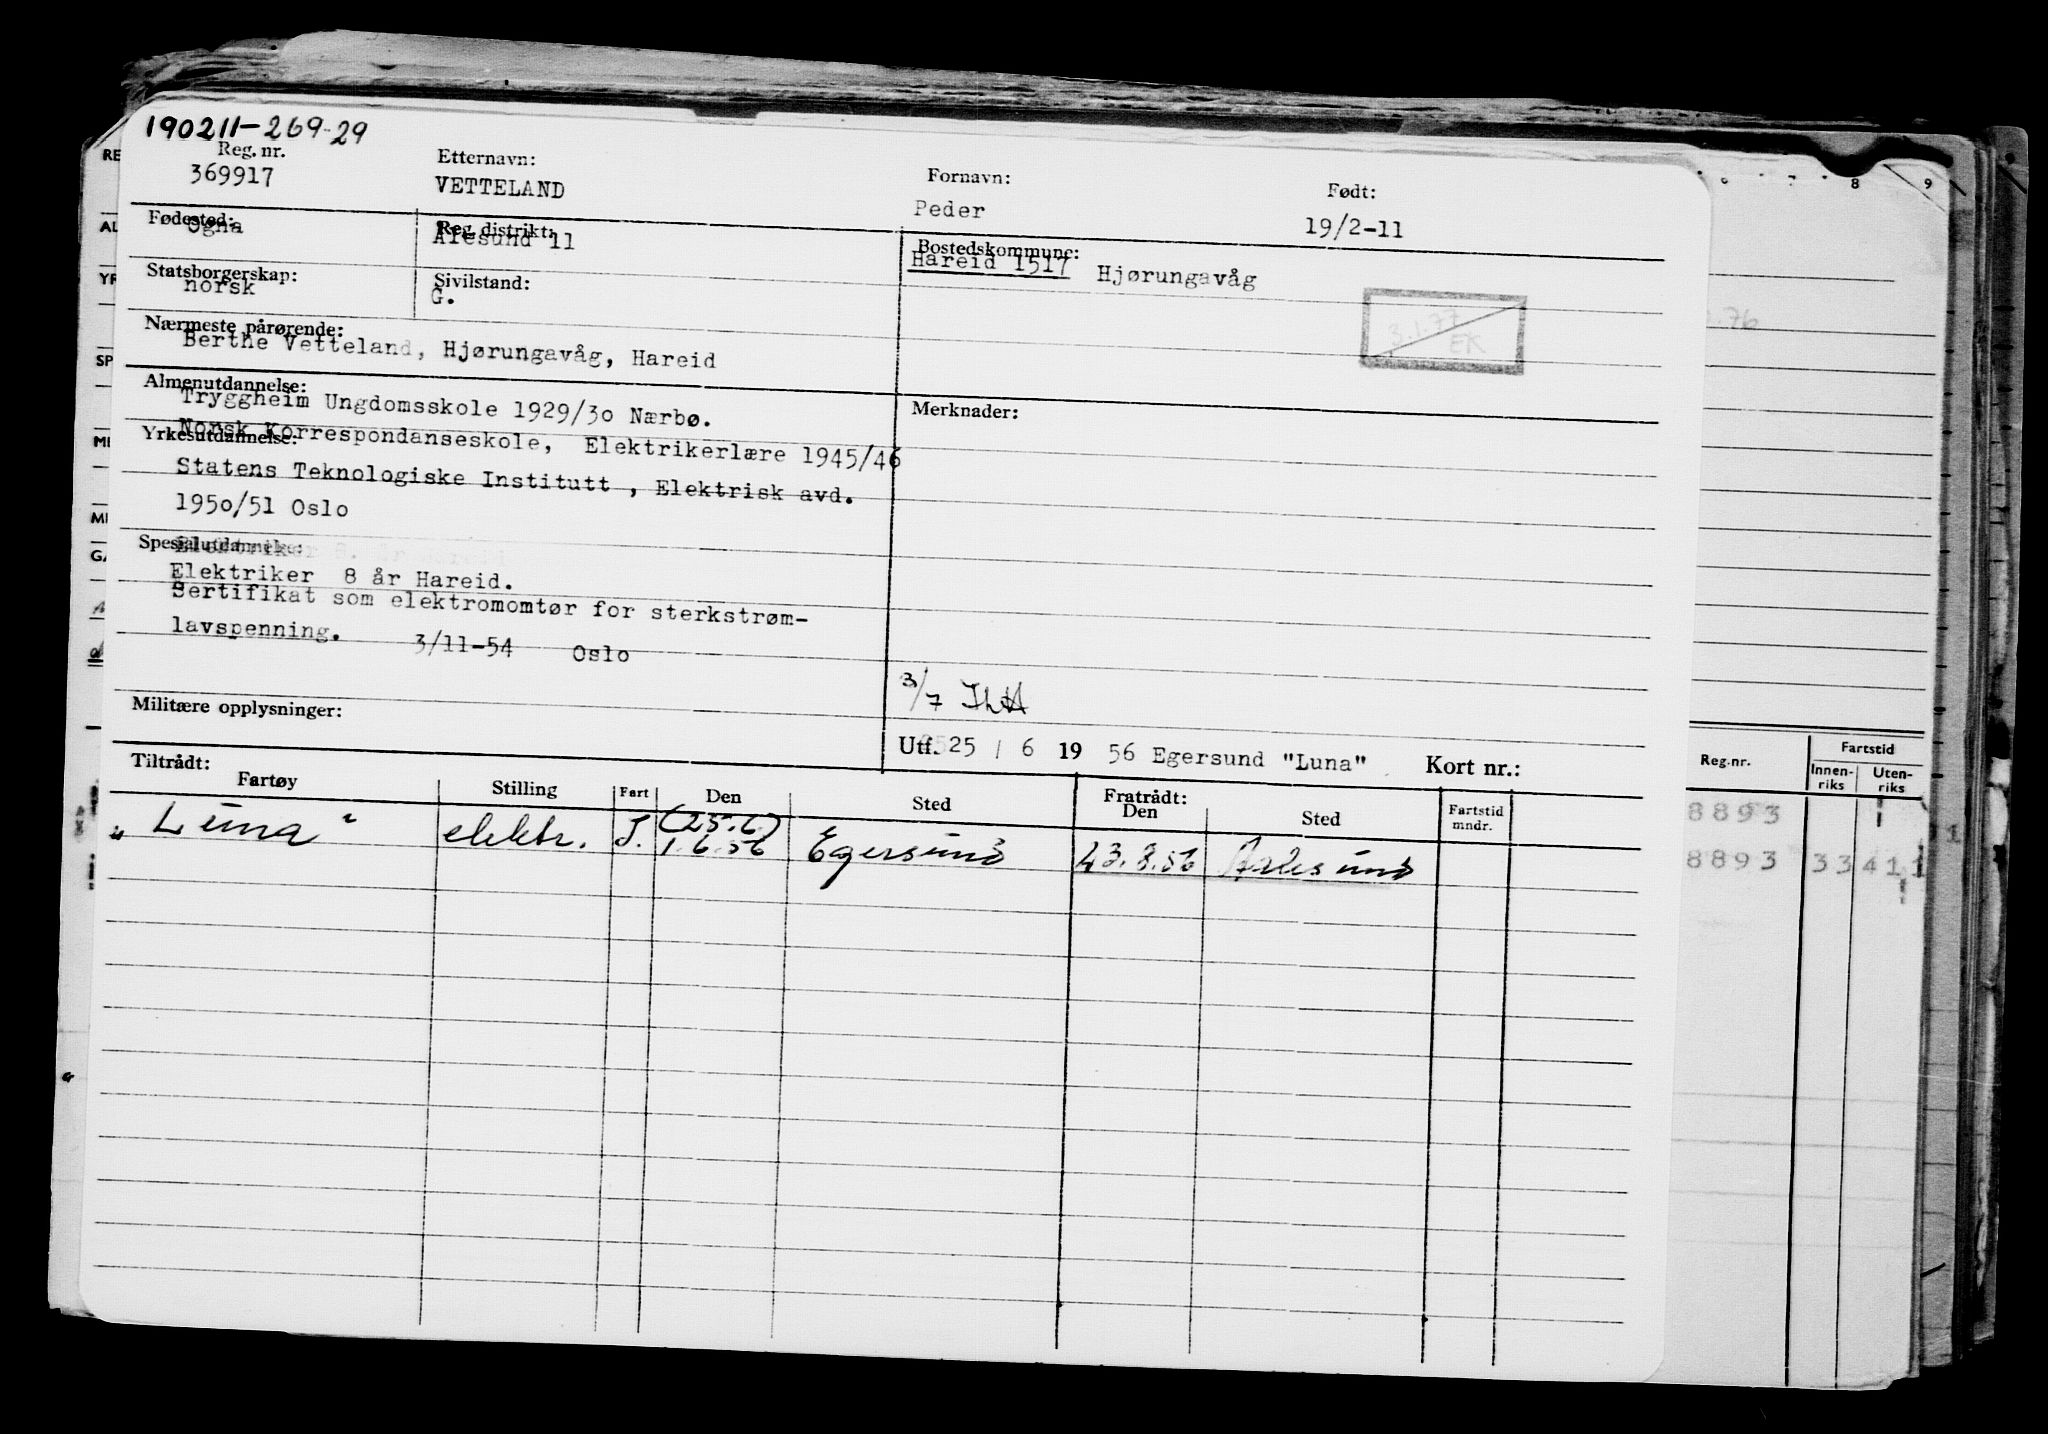 190211-269-29
Reg. nr. Etternavn: Fornavn: Født:
369917 VETTELAND Peder 19/2-11
Fødested: Ogna Reg. distrikt: Ålesund 11 Bostedskommune: Hareid 1517 Hjørungavåg
Statsborgerskap: norsk Sivilstand: G.
3.1.77 EK
Nærmeste pårørende:
Berthe Vetteland, Hjørungavåg, Hareid
Almenutdannelse: Merknader:
Tryggheim Ungdomsskole 1929/30 Nærbø.
Yrkesutdannelse: Norsk Korrespondanseskole, Elektrikerlære 1945/46
Statens Teknologiske Institutt , Elektrisk avd.
1950/51 Oslo
Spesialutdannelse:
Elektriker 8 år Hareid.
Sertifikat som elektromomtør for sterkstrøm-
lavspenning. 3/11-54 Oslo
3/7
Militære opplysninger:
Utf. 25 / 6 19 56 Egersund "Luna" Kort nr.:
Tiltrådt: Fratrådt:
Fartøy Stilling Fart Den Sted Den Sted Fartstid mndr.
"Luna" elektr. (25.6) 1.6.56 Egersund 23.8.56 Aalesund
6 7 8 9
.76
Reg.nr. Fartstid
Innen-riks Uten-riks
8893
8893 33 411